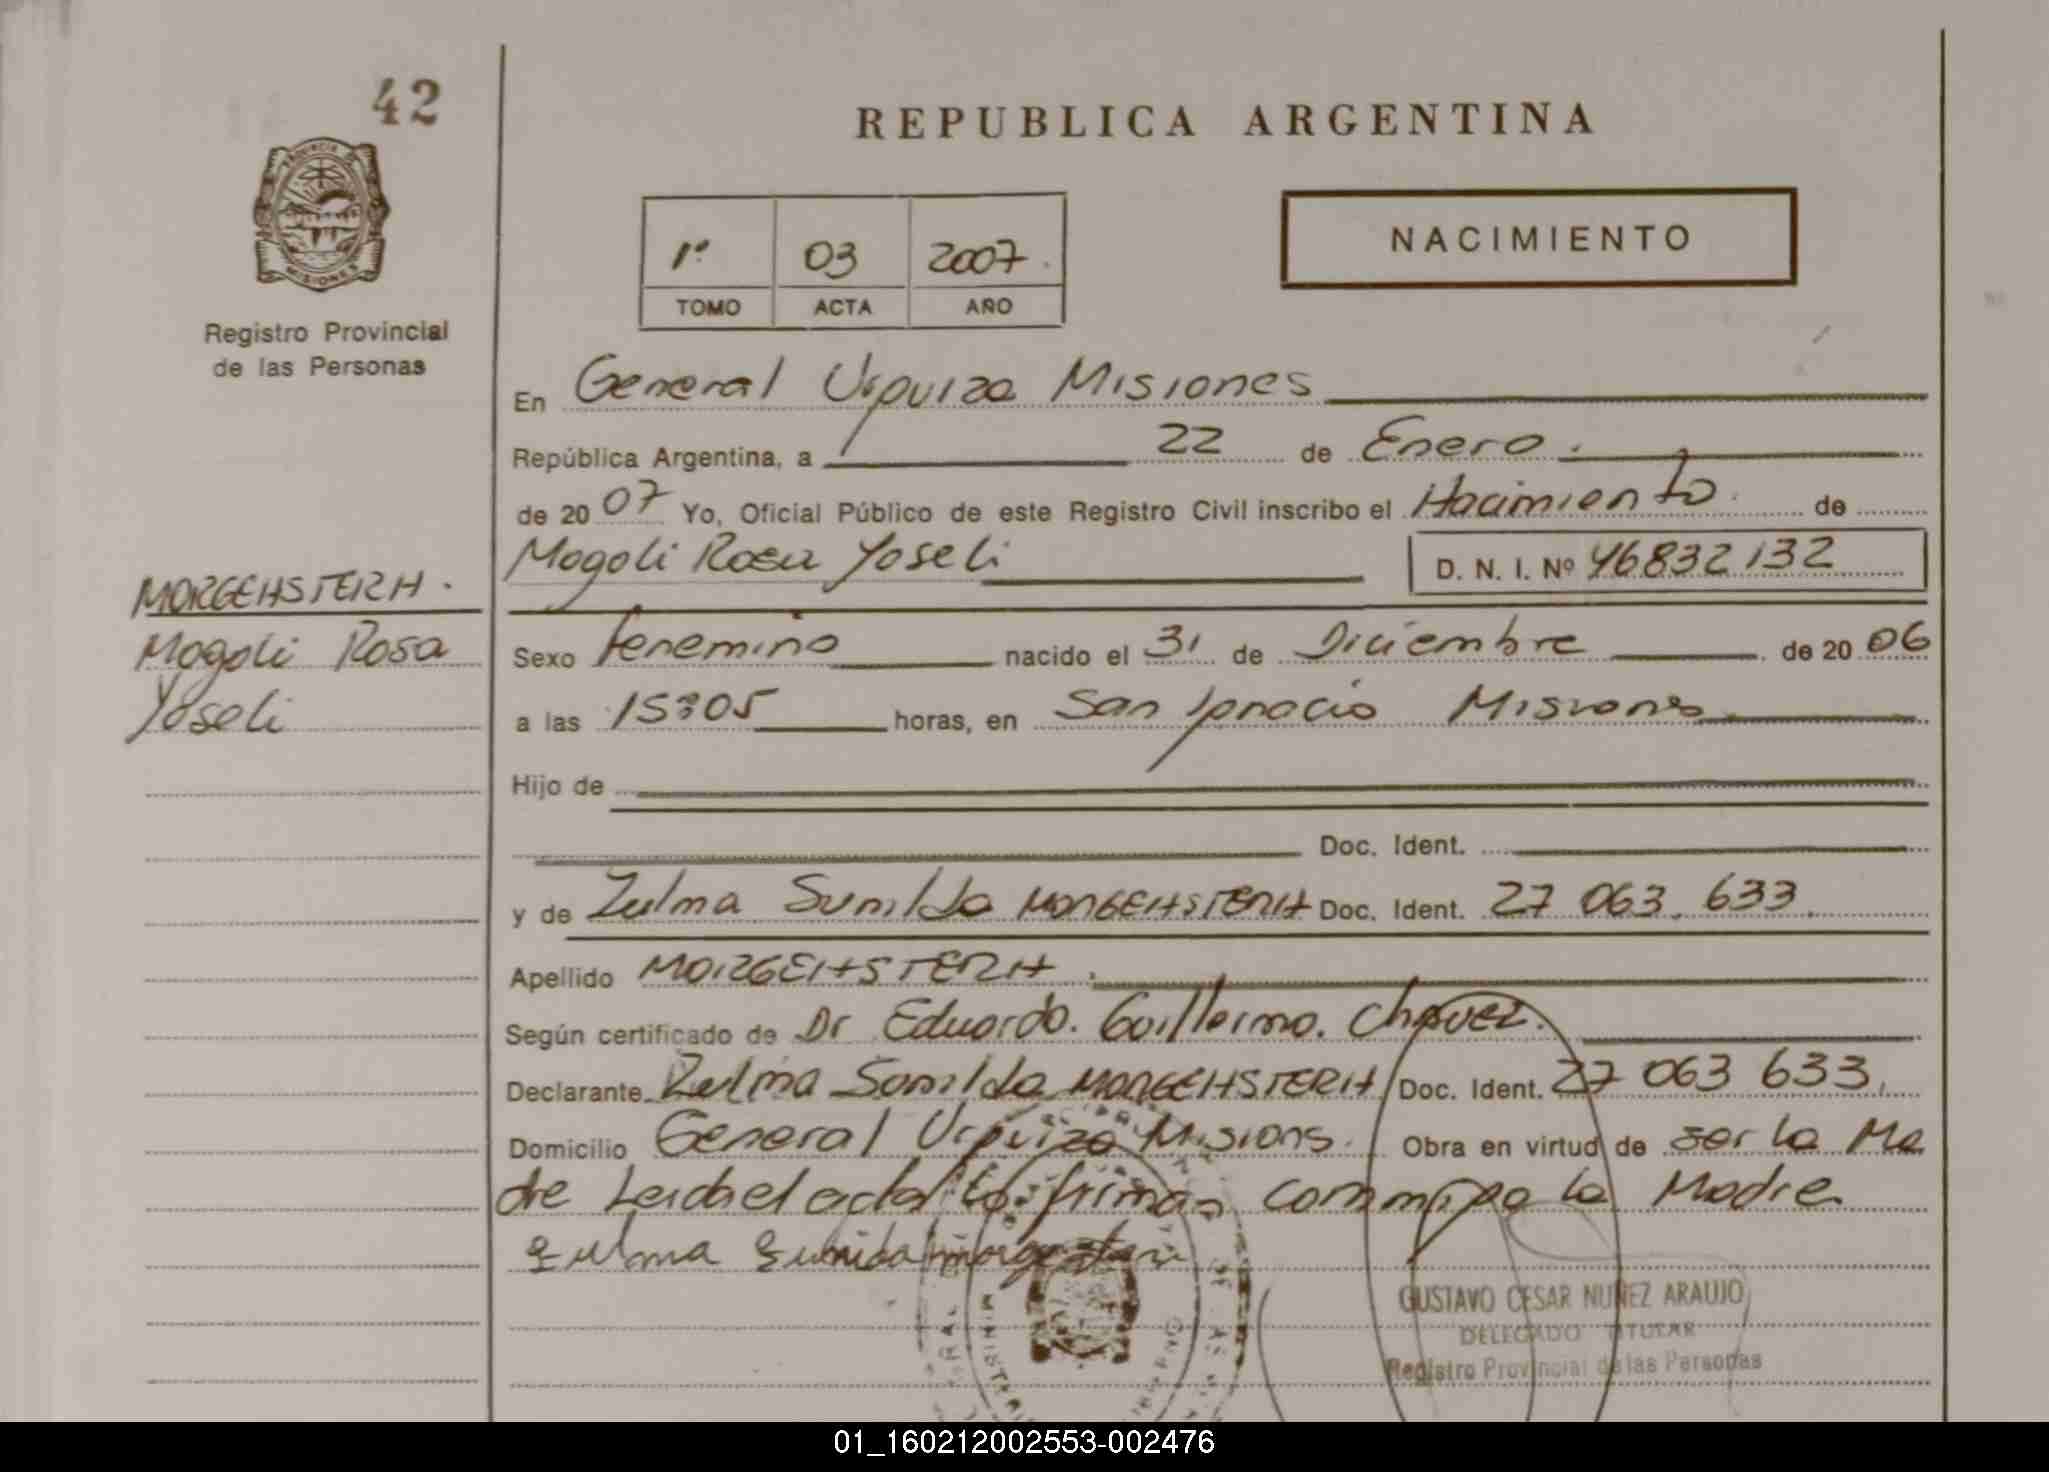 42
REPUBLICA ARGENTINA
PROVINCIA DE
MISIONES
Registro Provincial
de las Personas
1º 03 2007
TOMO ACTA AÑO
NACIMIENTO
En General Urquiza Misiones
República Argentina, a 22 de Enero.
de 2007 Yo, Oficial Público de este Registro Civil inscribo el Nacimiento de
Mogoli Rosa Yoseli D. N. I. Nº 46832132
MORGENSTERN.
Mogoli Rosa
Yoseli
Sexo femenino nacido el 31 de Diciembre de 2006
a las 15:05 horas, en San Ignacio Misiones
Hijo de
Doc. Ident.
y de Zulma Sunilda MORGENSTERN Doc. Ident. 27 063. 633.
Apellido MORGENSTERN.
Según certificado de Dr Eduardo. Guillermo. Chavez.
Declarante Zulma Sunilda MORGENSTERN Doc. Ident. 27 063 633
Domicilio General Urquiza Misions. Obra en virtud de ser la Ma
dre Leida el acta la firman conmigo la Madre
GUSTAVO CESAR NUÑEZ ARAUJO
DELEGADO TITULAR
Registro Provincial de las Personas
01_160212002553-002476